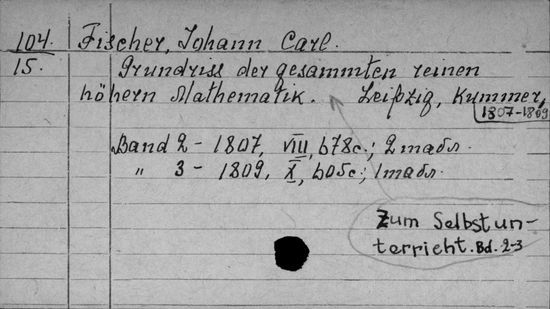 104. Fischer, Johann Carl.
15. Grundriss der gesammten reinen
höhern Mathematik. Leipzig, Kummer,
1807-1809
Band 2 - 1807, VIII, 678c.; 2 табл.
" 3 - 1809, X, 605c.; 1 табл.
Zum Selbstun-
terricht. Bd. 2-3